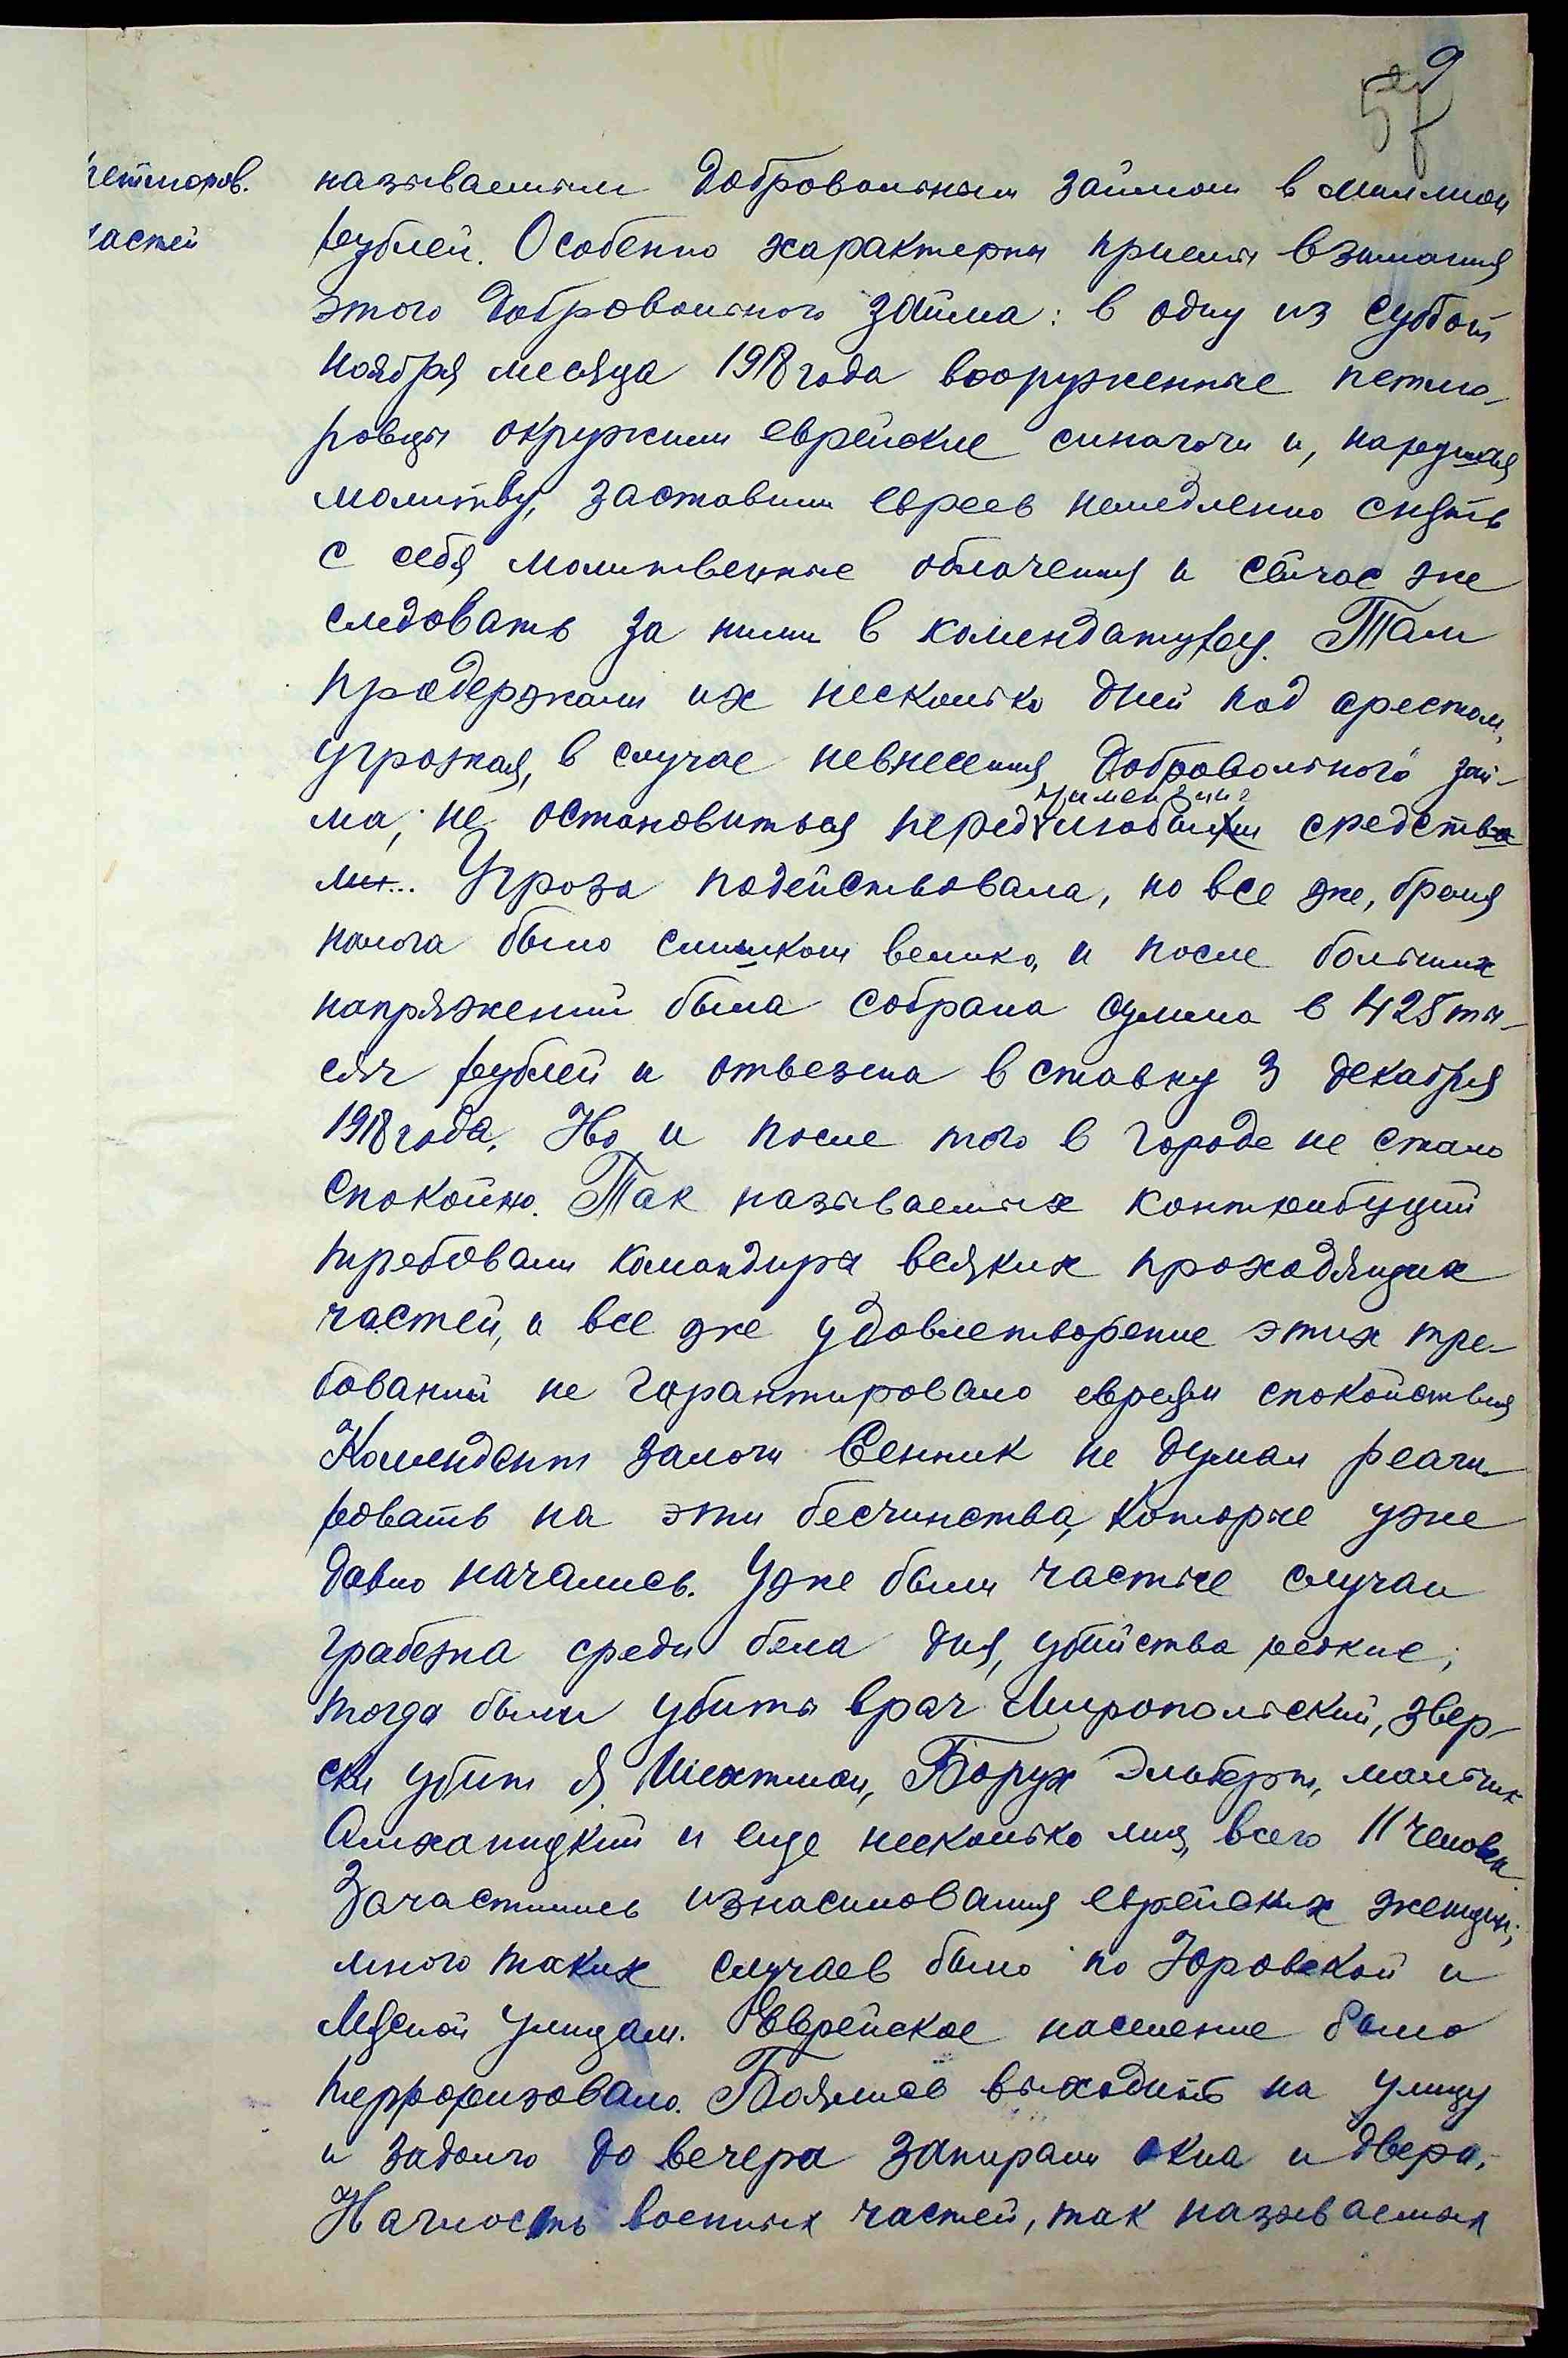 9
57
петлюров.
частей
называемым добровольным займом в миллион
рублей. Особенно характерны приемы взимания
этого добровольного займа: в одну из суббот
ноября месяца 1918 года вооруженные петлю-
ровцы окружили еврейские синагоги и, нарушая
молитву, заставили евреев немедленно снять
с себя молитвенные облачения и сейчас же
следовать за ними в комендатуру. Там
продержали их несколько дней под арестом,
угрожая, в случае невнесения добровольного зай-
ма, не остановиться перед применением любых средств
ми... Угроза подействовала, но все же, бремя
налога было слишком велико, и после больших
напряжений была собрана сумма в 425 ты-
сяч рублей и отвезена в ставку 3 декабря
1918 года. Но и после того в городе не стало
спокойно. Так называемых контрибуций
требовали командиры всяких проходящих
частей, и все же удовлетворение этих тре-
бований не гарантировало евреям спокойствия
Комендант залоги Сенник не думал реаги-
ровать на эти бесчинства, которые уже
давно начались. Уже были частые случаи
грабежа среди бела дня, убийства редкие;
тогда были убиты врач Миропольский, звер-
ски убит Я Шехтман, Борух Эльберт, мальчик
Алхапицкий и еще несколько лиц, всего 11 человек
Зачастились изнасилования еврейских женщин;
много таких случаев было по Юровской и
Мясной улицам. Еврейское население было
терроризовано. Боялись выходить на улицу
и задолго до вечера запирали окна и двери.
Наглость военных частей, так называемых